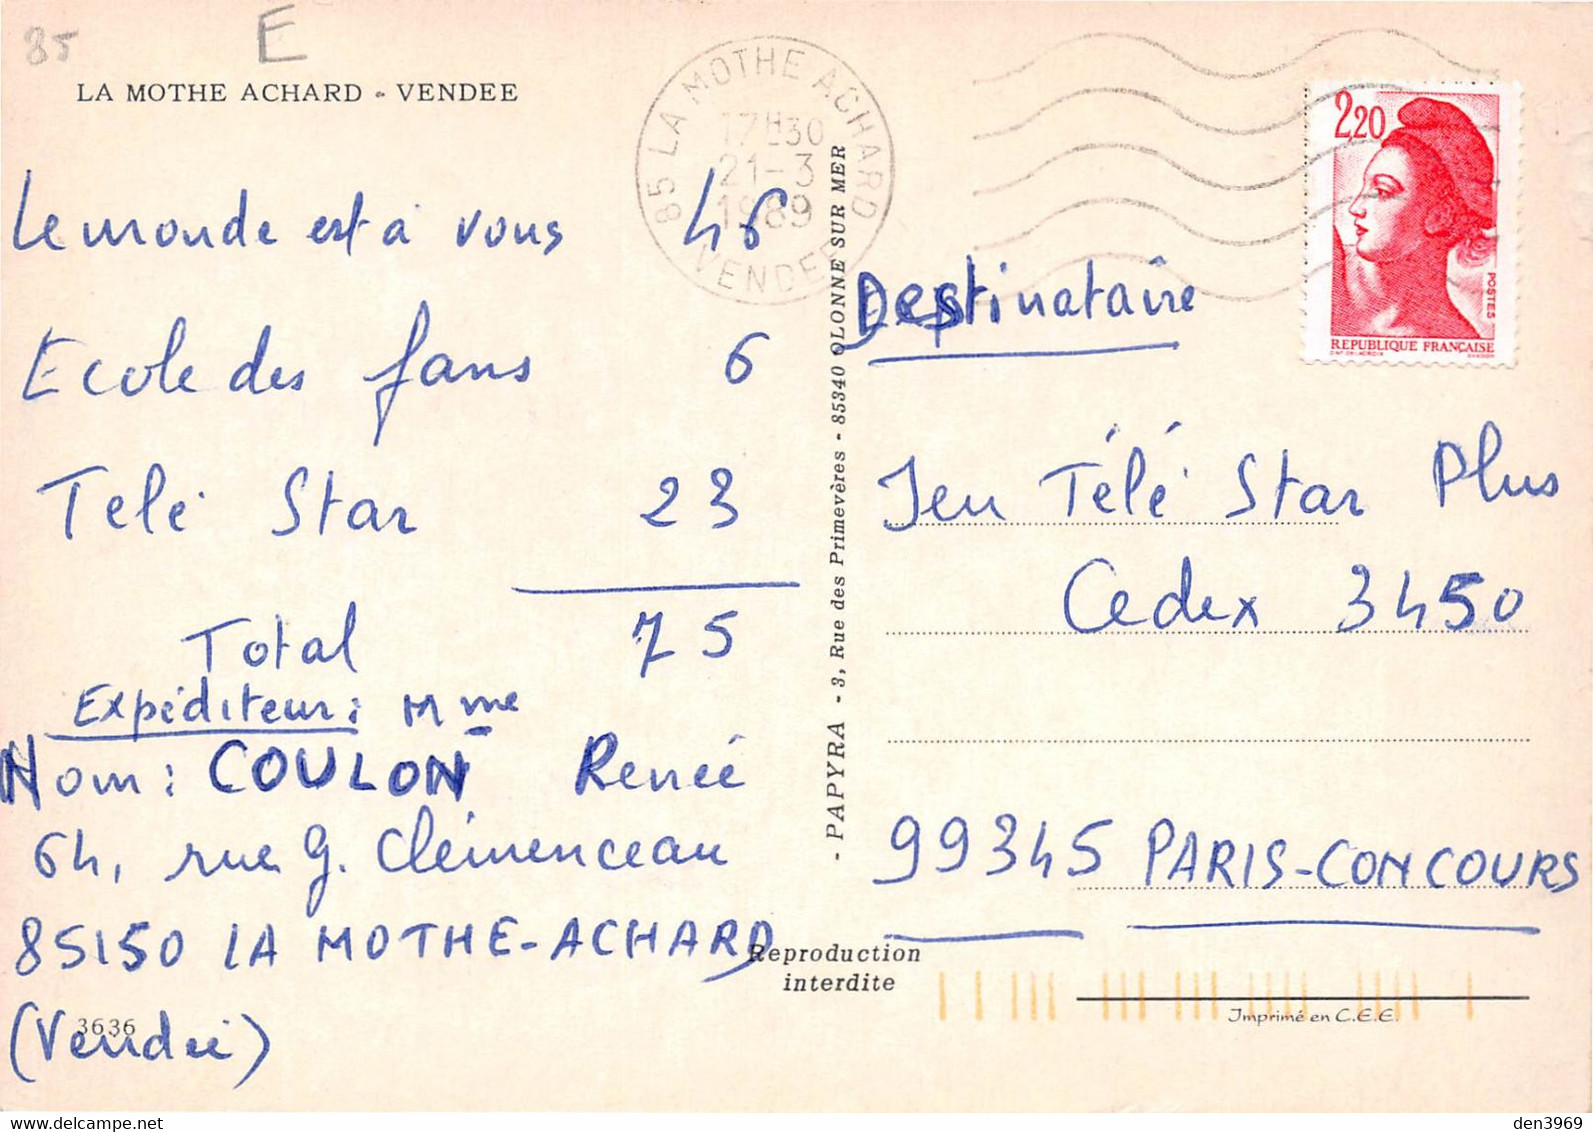 85
E
LA MOTHE ACHARD - VENDEE
85 LA MOTHE ACHARD
17H30
21-3
1989
VENDEE
2,20
POSTES
REPUBLIQUE FRANÇAISE
Le monde est à vous 46
Ecole des fans 6
Télé Star 23
Total 75
Expéditeur : Mme
Nom : COULON Renée
64, rue G. Clémenceau
85150 LA MOTHE-ACHARD
(Vendée)
3636
- PAPYRA - 3, Rue des Primevères - 85340 OLONNE SUR MER
Reproduction
interdite
Destinataire
Jeu Télé Star Plus
Cedex 3450
99345 PARIS-CONCOURS
Imprimé en C.E.E.
den3969